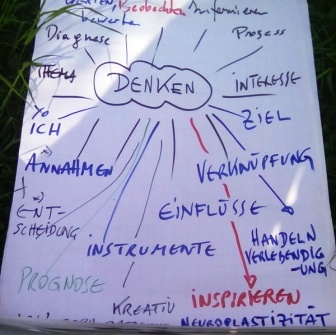 Beobachten Informieren
bewerten
Diagnose
Prozess
THEMA
DENKEN
INTERESSE
Yo
ICH
ZIEL
ANNAHMEN
VERKNÜPFUNG
ENT-
SCHEIDUNG
EINFLÜSSE
INSTRUMENTE
HANDELN
VERLEBENDIG-
UNG
PROGNOSE
KREATIV
INSPIRIEREN
NEUROPLASTIZITÄT